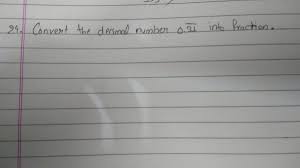 24. Convert the decimal number 0.2̅1̅ into fraction.